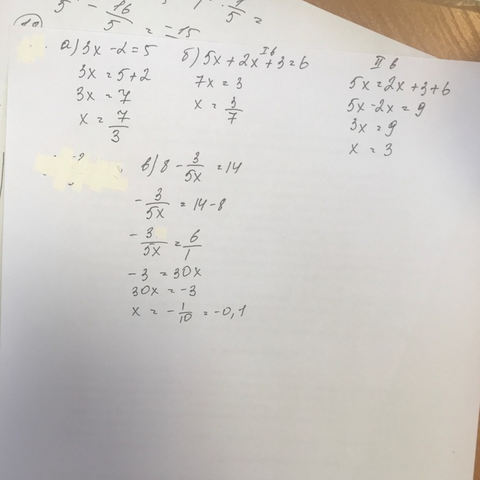 а) 3x - 2 = 5
3x = 5 + 2
3x = 7
x = 7/3
б) I в
5x + 2x + 3 = 6
7x = 3
x = 3/7
II в
5x = 2x + 3 + 6
5x - 2x = 9
3x = 9
x = 3
в) 8 - 3/5x = 14
- 3/5x = 14 - 8
- 3/5x = 6/1
- 3 = 30x
30x = -3
x = - 1/10 = -0,1